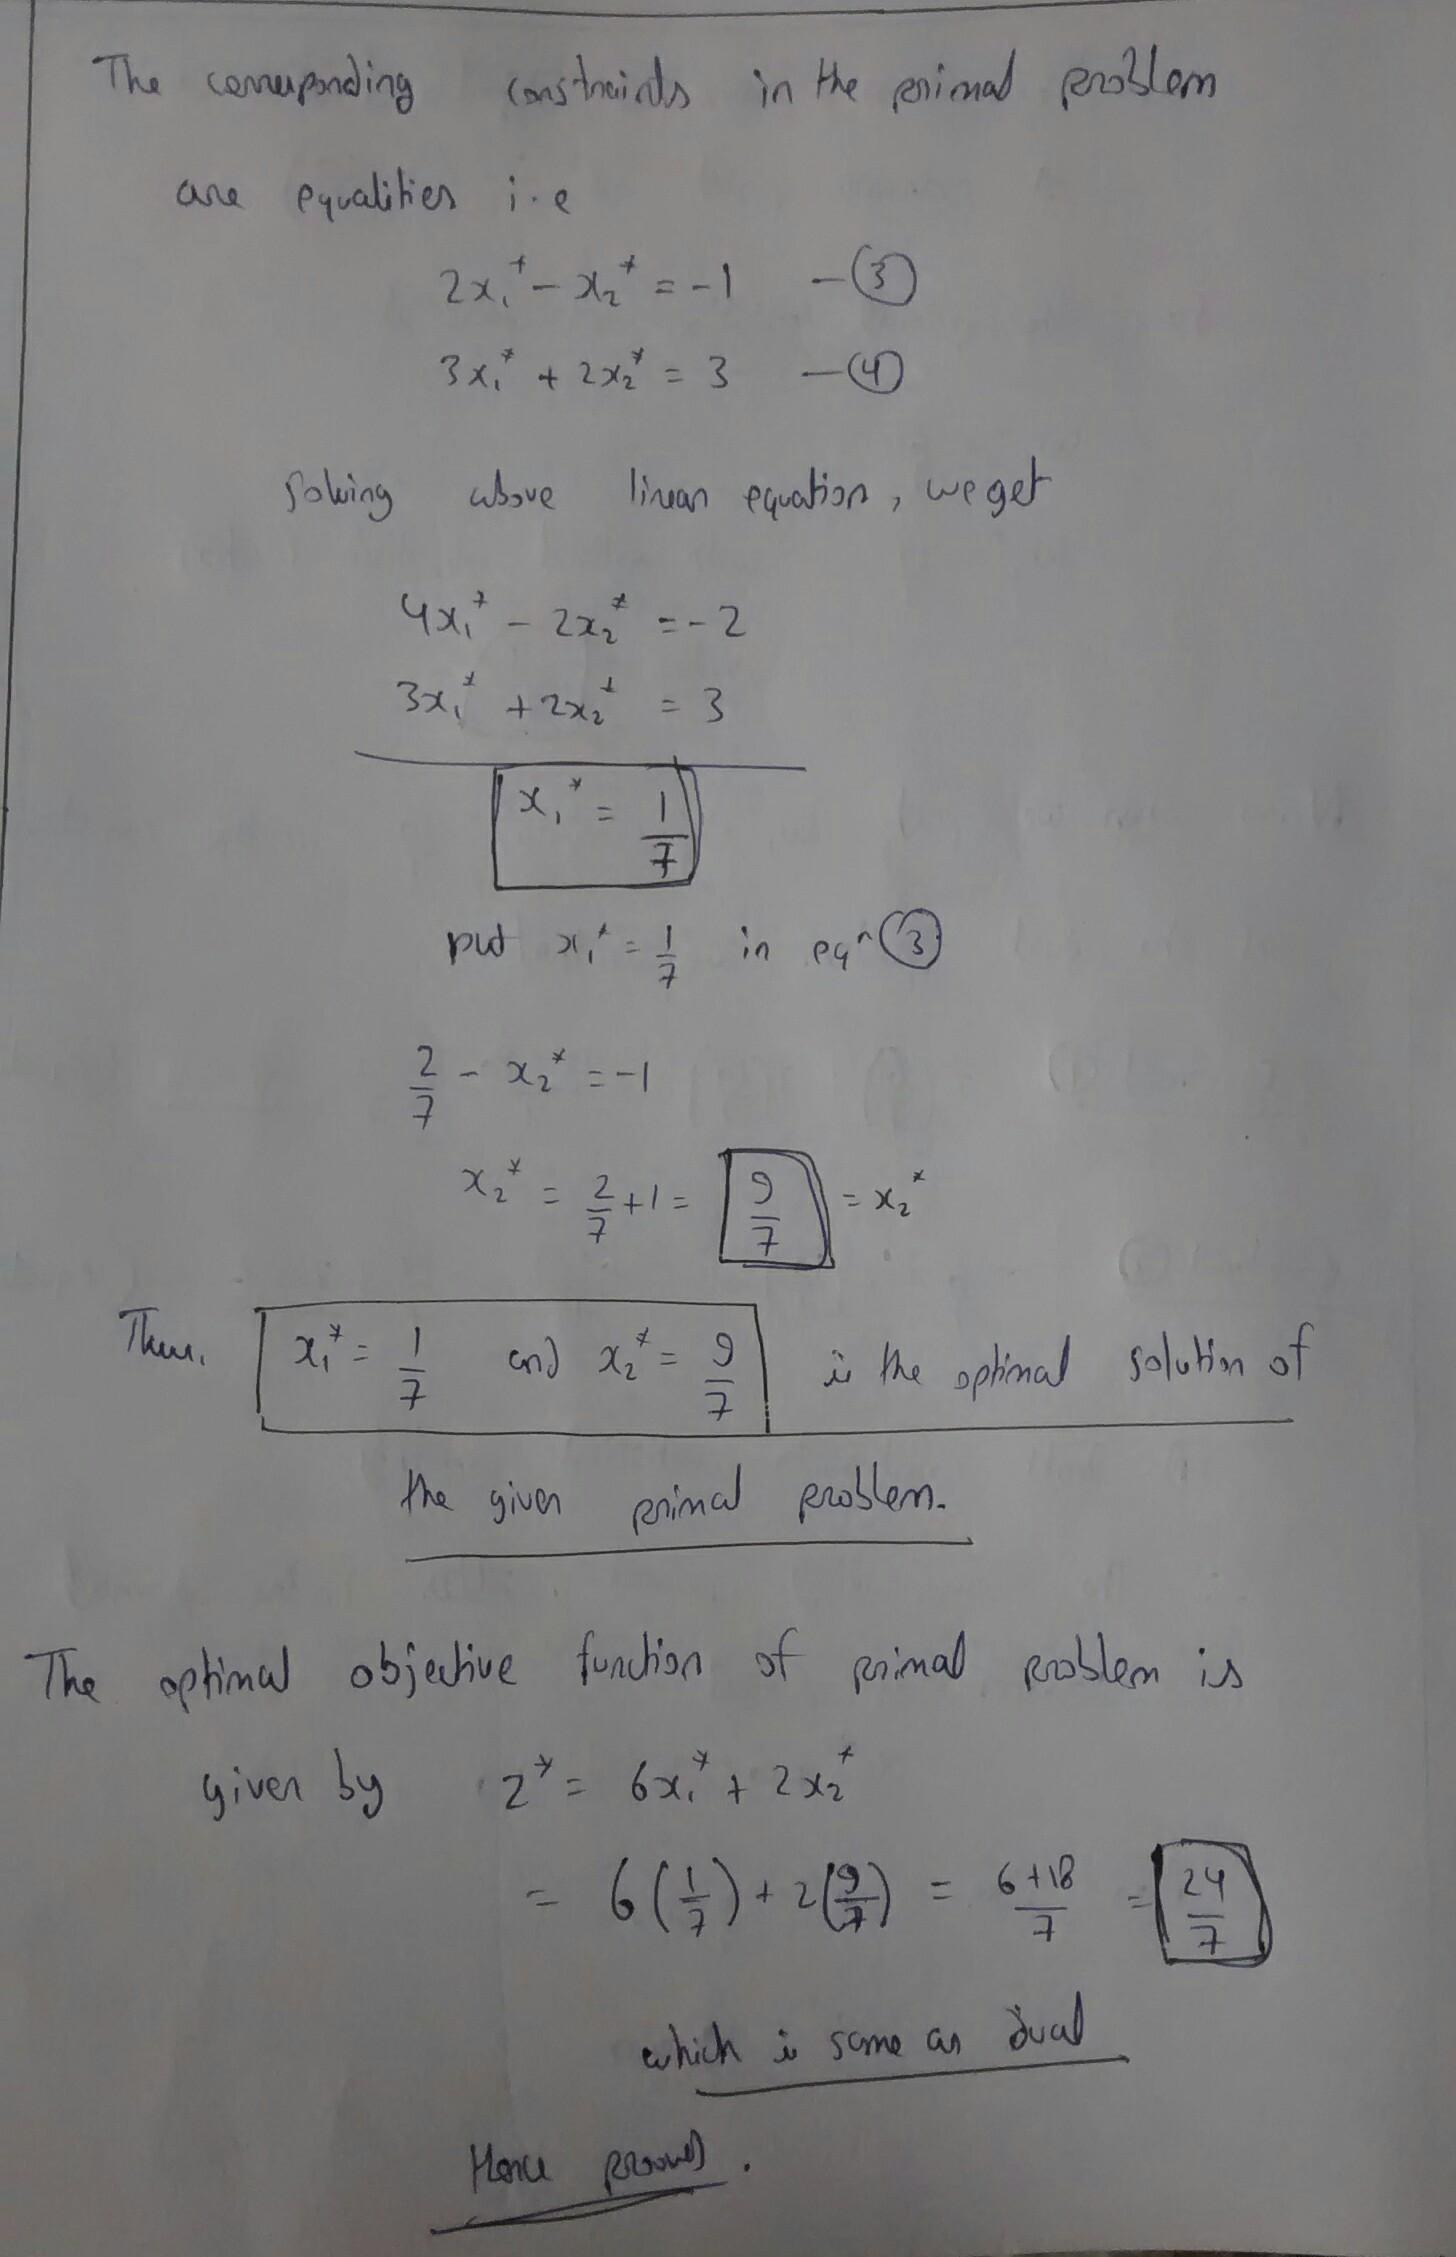 The corresponding constraints in the primal problem
are equalities i.e
2x₁* - x₂* = -1 - ③
3x₁* + 2x₂* = 3 - ④
Solving above linear equation, we get
4x₁* - 2x₂* = -2
3x₁* + 2x₂* = 3
x₁* = 1/7
put x₁* = 1/7 in eqⁿ ③
2/7 - x₂* = -1
x₂* = 2/7 + 1 = 9/7 = x₂*
Thus, x₁* = 1/7 and x₂* = 9/7 is the optimal solution of
the given primal problem.
The optimal objective function of primal problem is
given by z* = 6x₁* + 2x₂*
= 6(1/7) + 2(9/7) = 6+18/7 = 24/7
which is same as dual
Hence proved.